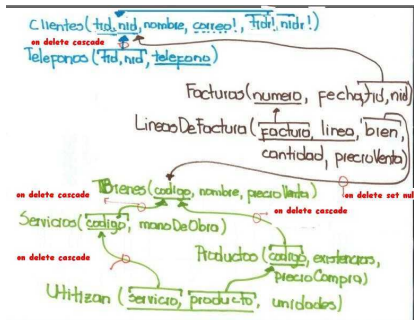 Clientes(tid, nid, nombre, correo!, tidr!, nidr!)
on delete cascade
Telefonos(tid, nid, telefono)
Facturas(numero, fecha, tid, nid)
LineasDeFactura(factura, linea, bien,
cantidad, precioVenta)
Bienes(codigo, nombre, precioVenta)
on delete cascade
on delete set nul
Servicios(codigo, manoDeObra)
on delete cascade
Productos(codigo, existencias,
precioCompra)
on delete cascade
Utilizan(servicio, producto, unidades)